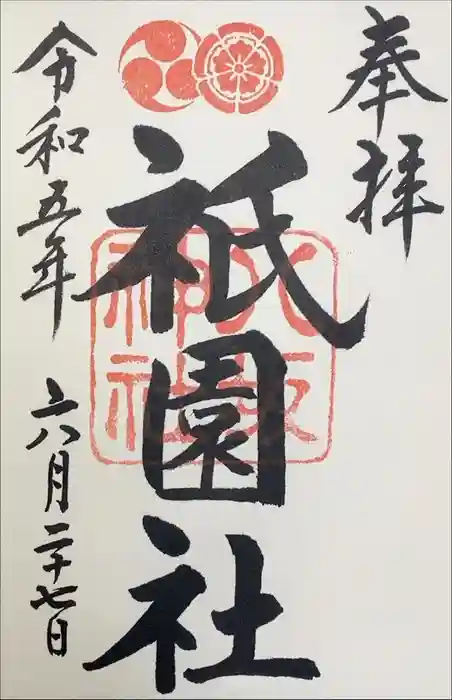 奉拝
祇園社
八坂
神社
令和五年
六月二十七日